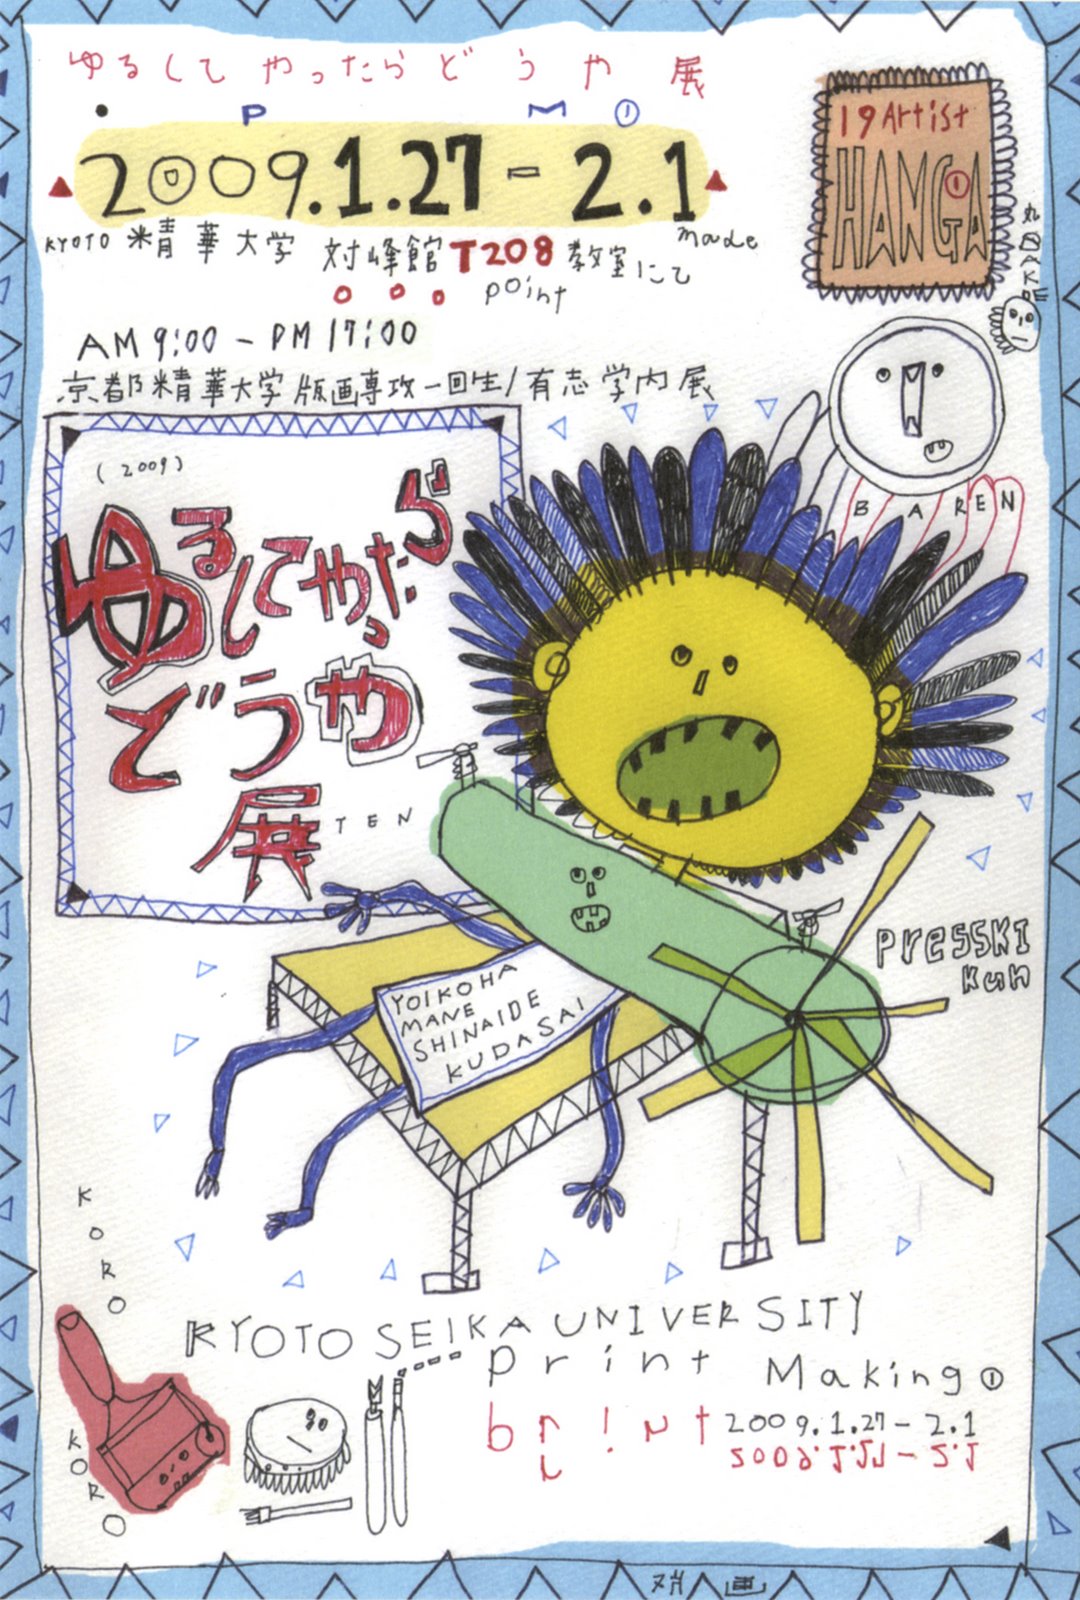 ゆるしてやったらどうや 展
P M ①
2009.1.27 - 2.1
KYOTO 精華大学 対峰館 T208 教室にて
made
point
AM 9:00 - PM 17:00
京都精華大学版画専攻一回生/有志学内展
19 Artist
HANGA
①
BAREN
(2009)
ゆるしてやったら
どうや
展
TEN
PRESSKI
Kun
YOIKOHA
MANE
SHINAIDE
KUDASAI
KORO
KORO
KYOTO SEIKA UNIVERSITY
print Making ①
2009.1.27 - 2.1